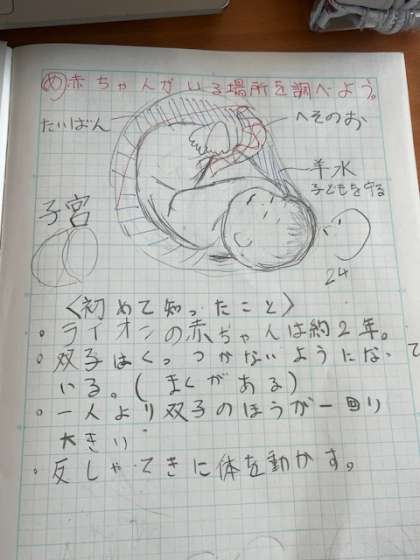 め 赤ちゃんがいる場所を調べよう。
たいばん
へそのお
羊水
子どもを守る
子宮
24
〈初めて知ったこと〉
・ライオンの赤ちゃんは約2年。
・双子はくっつかないようになって
いる。(まくがある)
・一人より双子のほうが一回り
大きい
・反しゃてきに体を動かす。